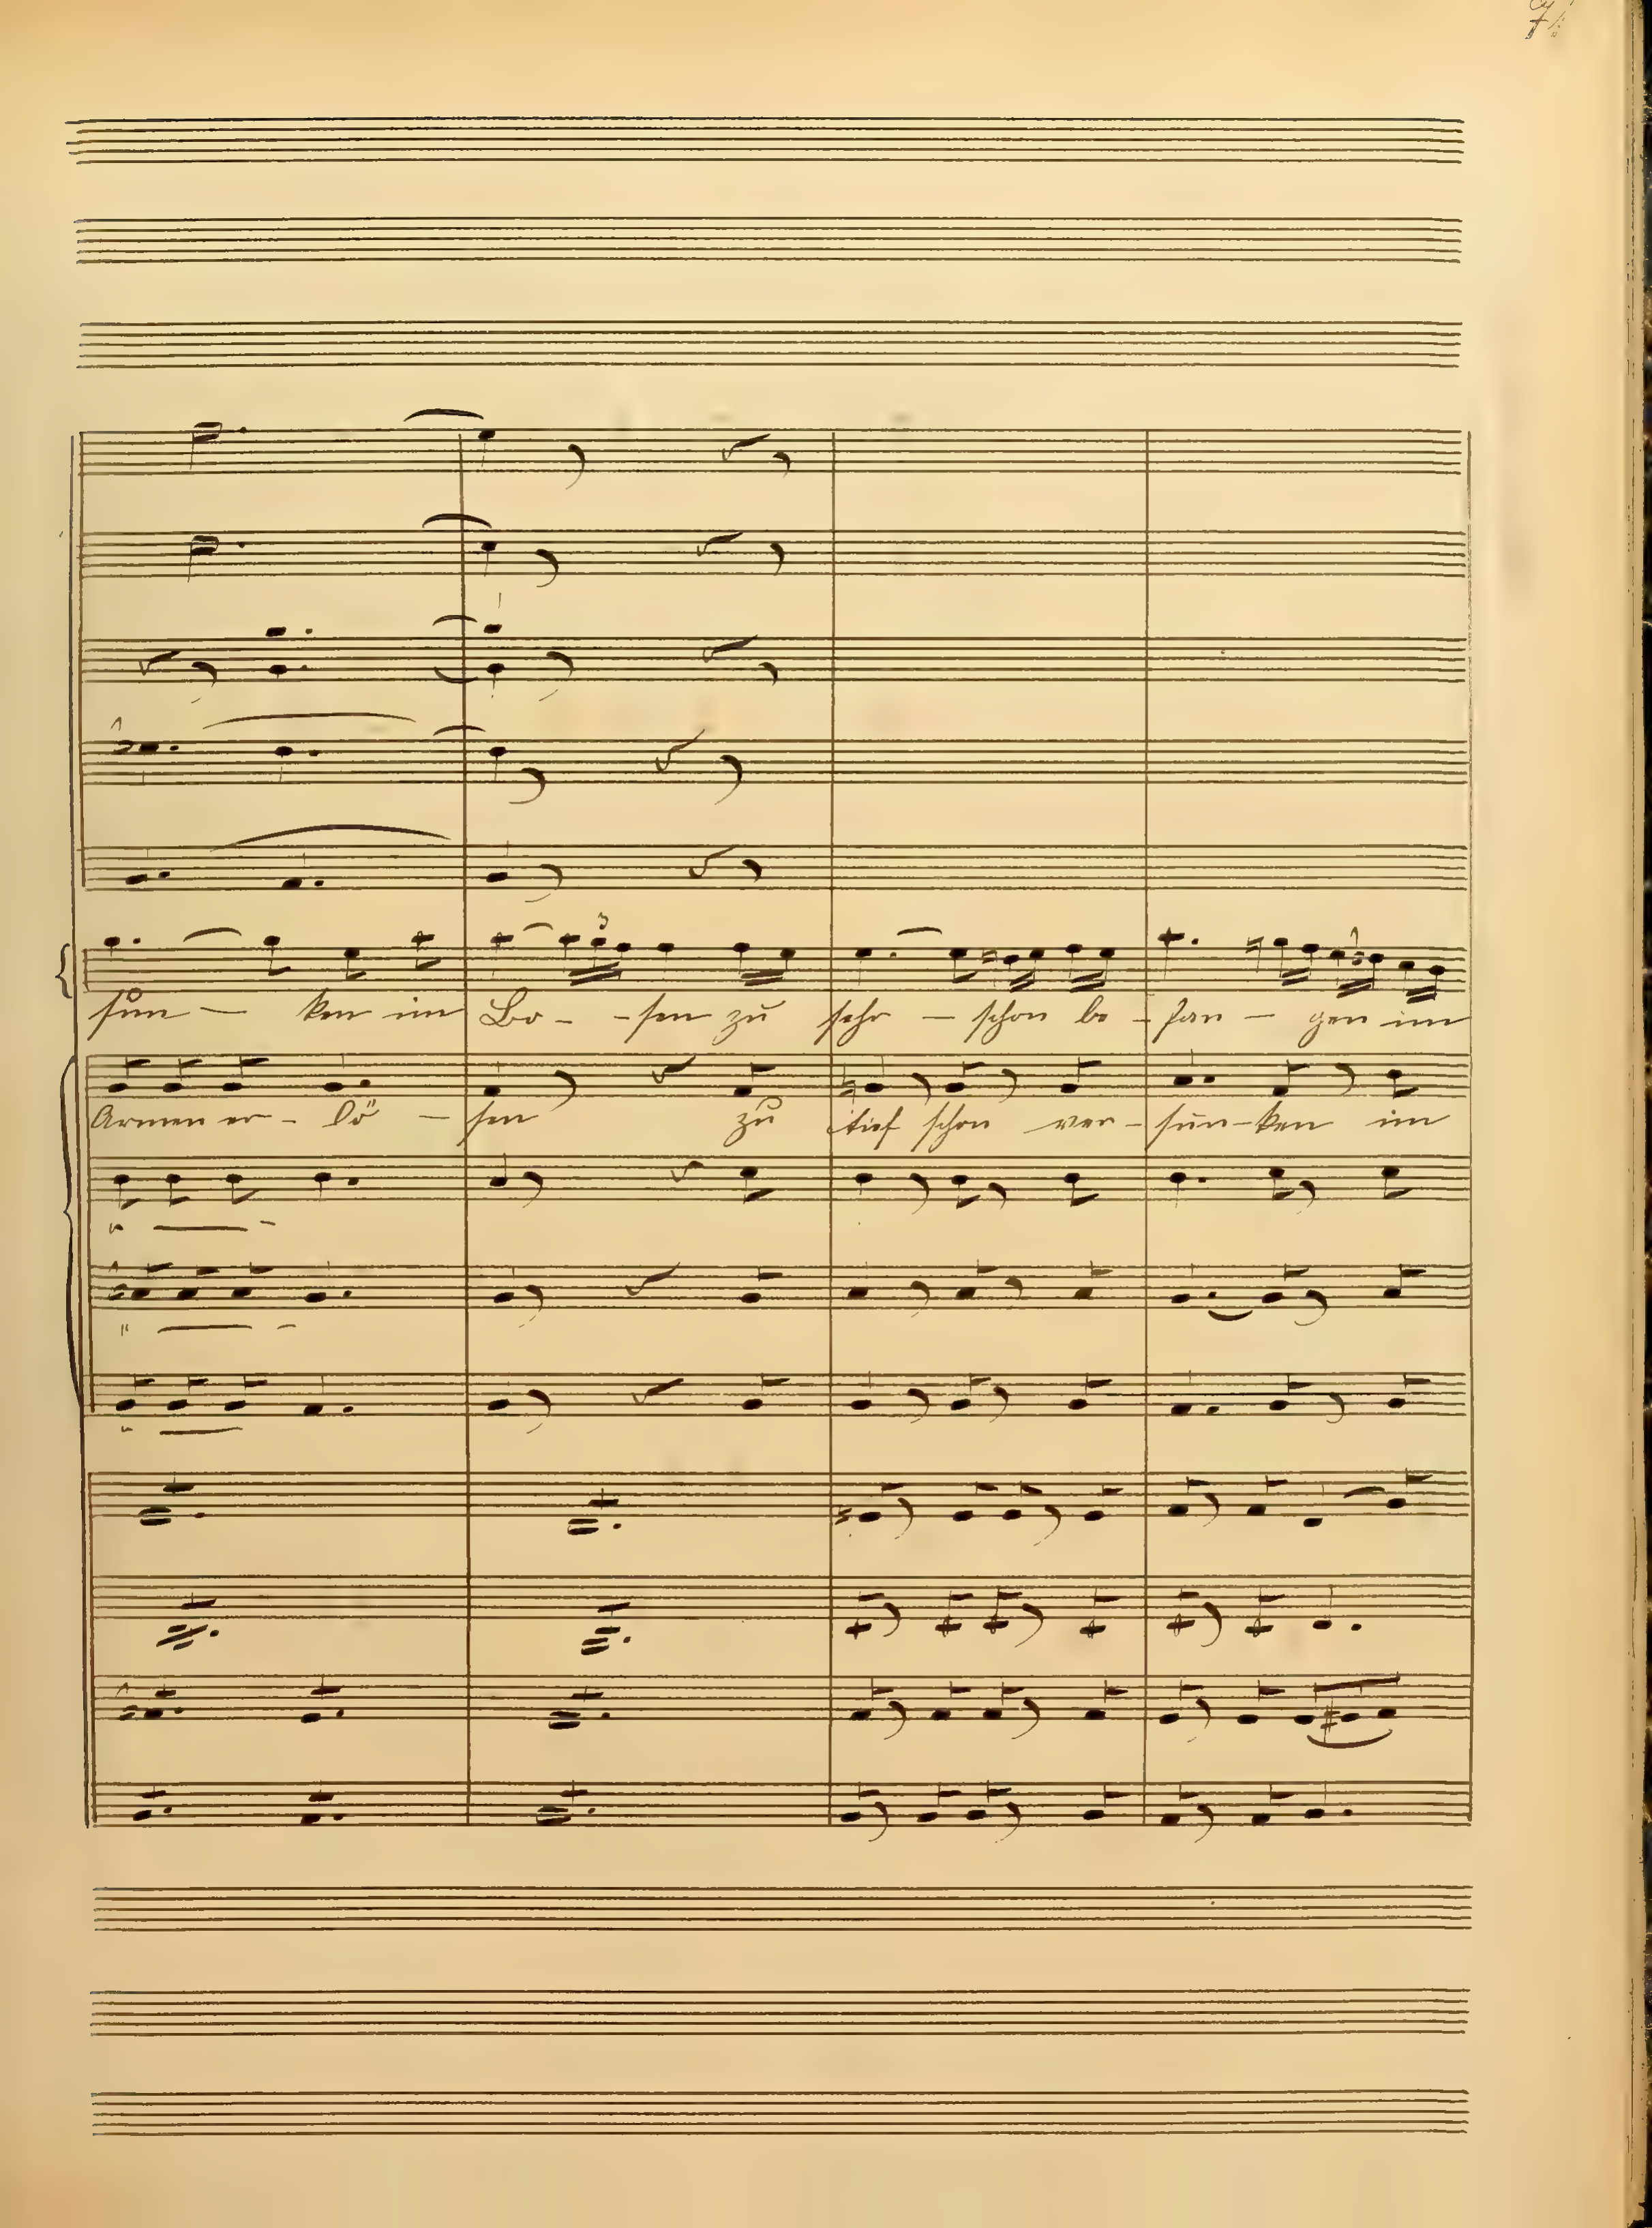 sun - ken im Bo - - sen zu sehr - schon be - fan - gen im
Armen er - lö - sen zu tief schon ver - sun - ken im